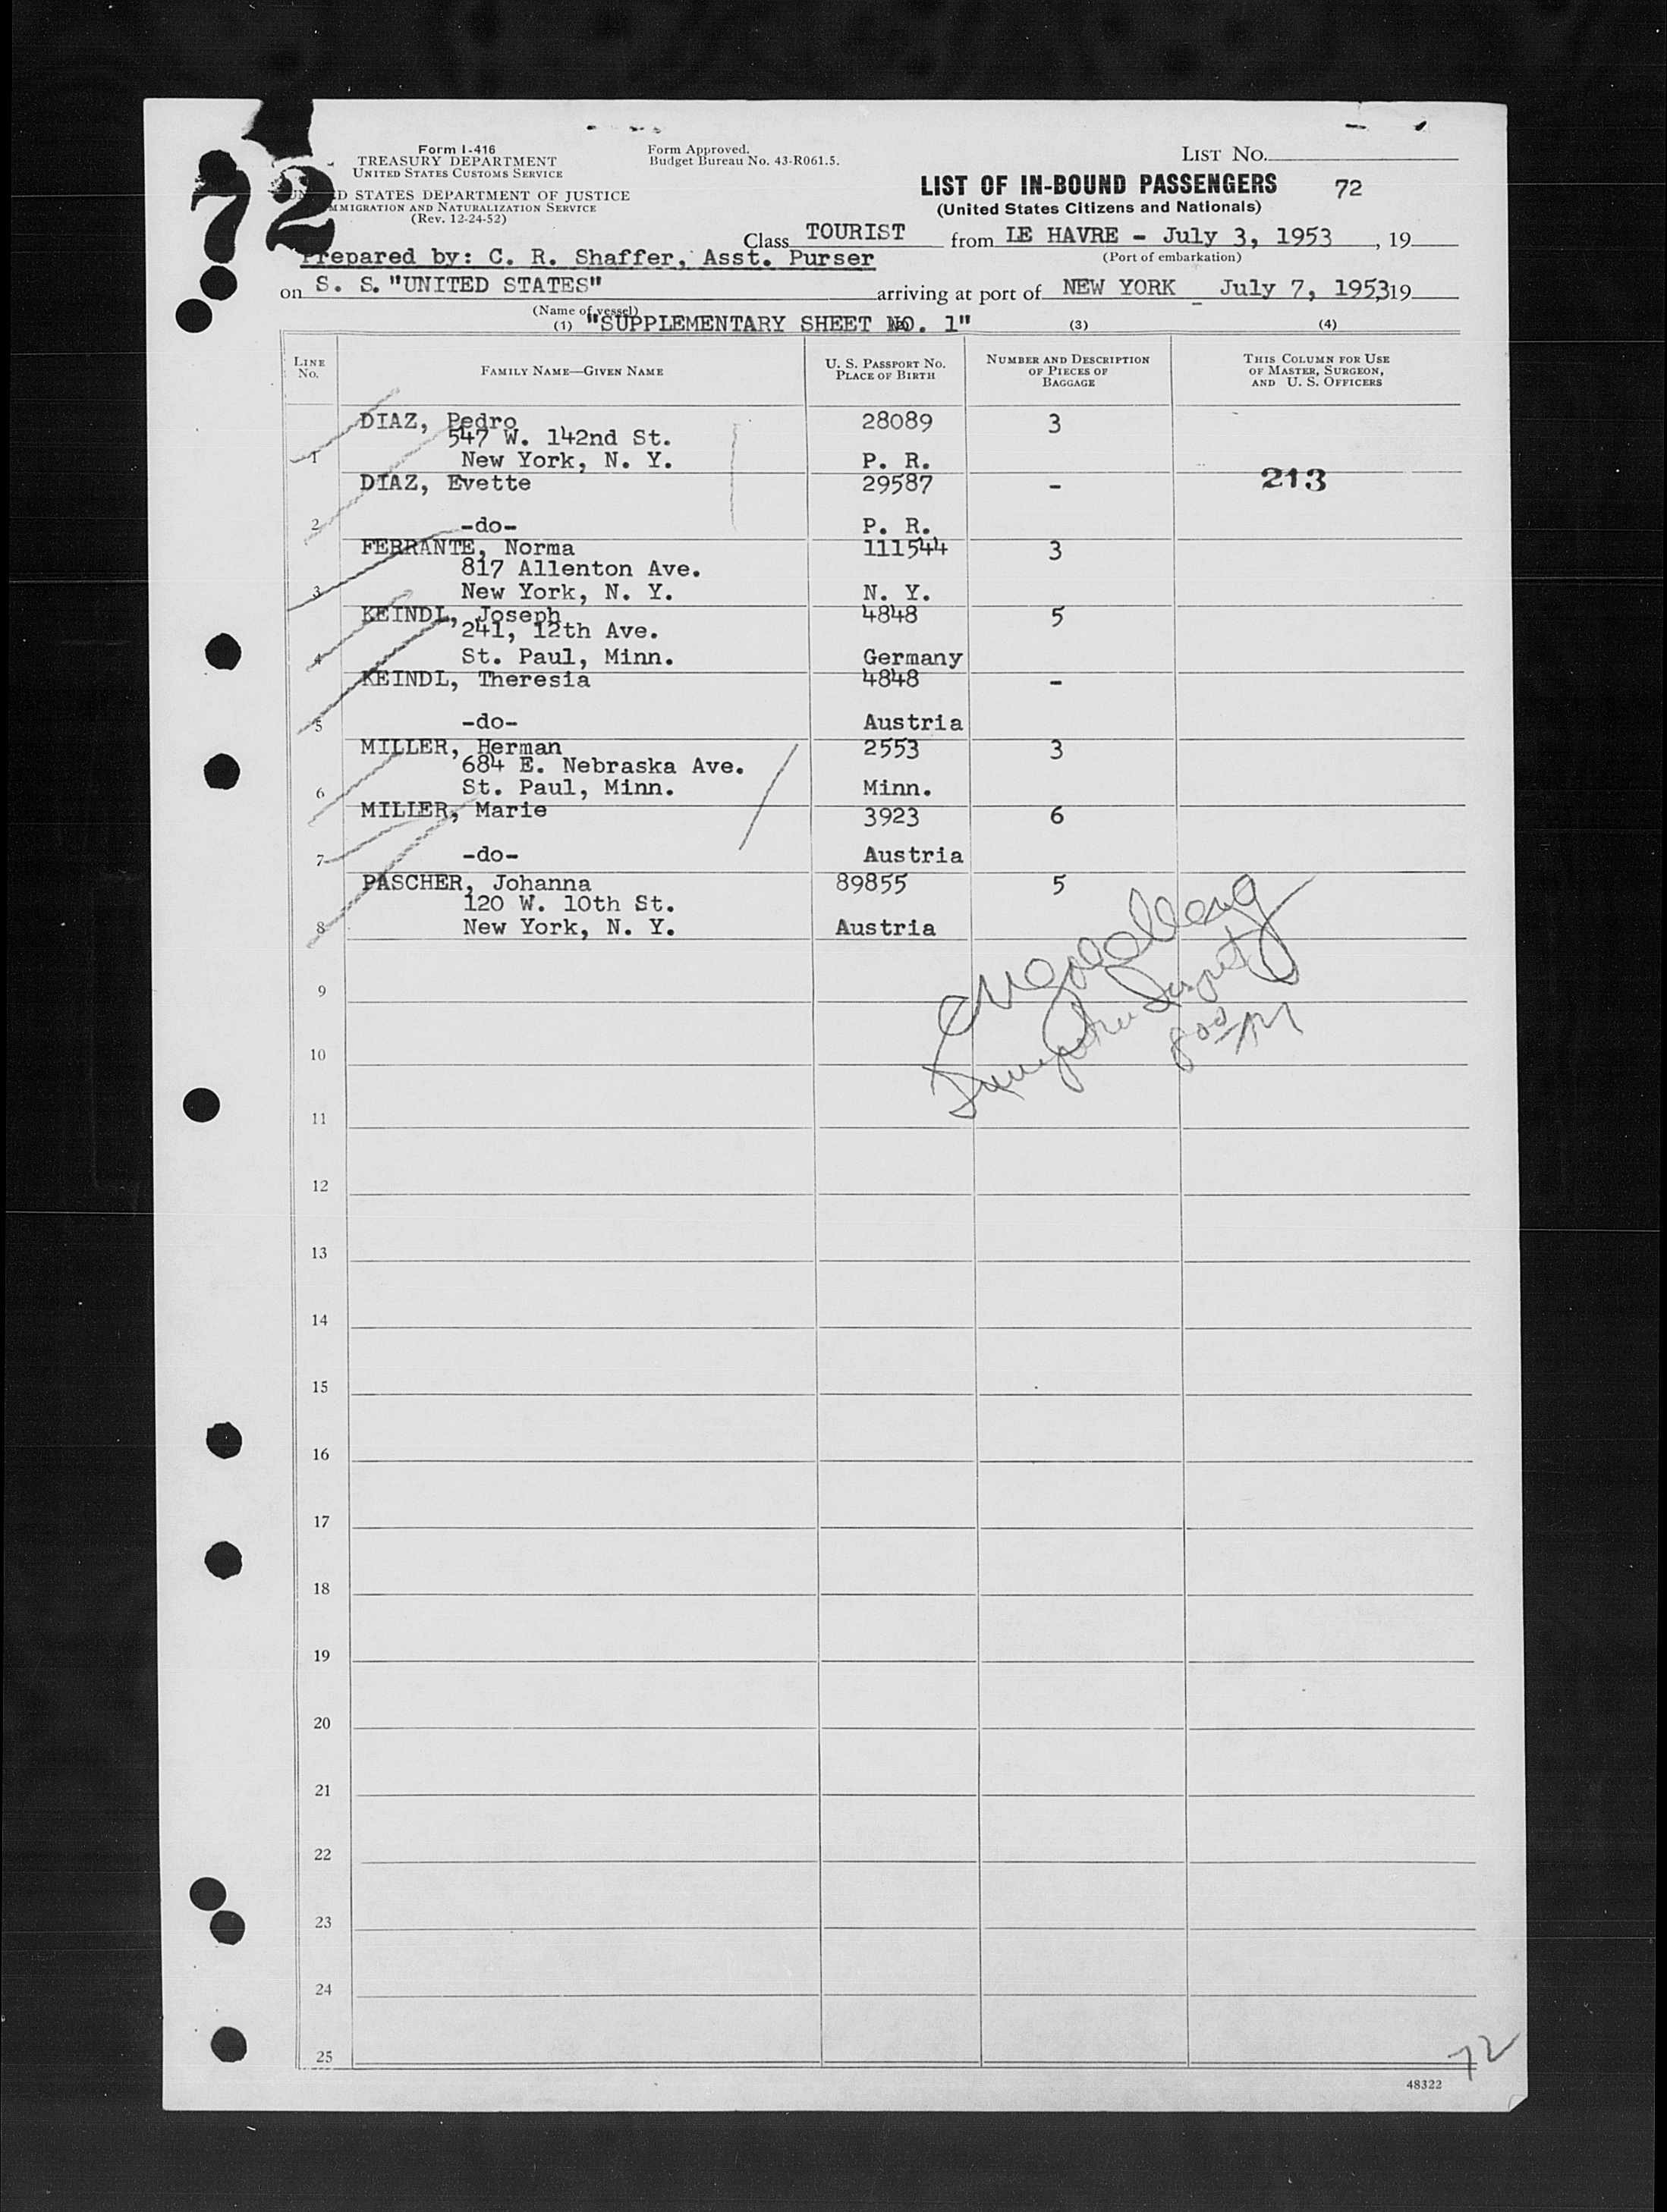 72
Form I-416
TREASURY DEPARTMENT
UNITED STATES CUSTOMS SERVICE
D STATES DEPARTMENT OF JUSTICE
MMIGRATION AND NATURALIZATION SERVICE
(Rev. 12-24-52)
Form Approved.
Budget Bureau No. 43-R061.5.
LIST NO.
LIST OF IN-BOUND PASSENGERS 72
(United States Citizens and Nationals)
Class TOURIST from LE HAVRE - July 3, 1953, 19
(Port of embarkation)
Prepared by: C. R. Shaffer, Asst. Purser
on S. S. "UNITED STATES" arriving at port of NEW YORK July 7, 1953 19
(Name of vessel)
(1) "SUPPLEMENTARY SHEET NO. 1" (3) (4)
LINE NO. FAMILY NAME—GIVEN NAME U. S. PASSPORT NO. PLACE OF BIRTH NUMBER AND DESCRIPTION OF PIECES OF BAGGAGE THIS COLUMN FOR USE OF MASTER, SURGEON, AND U. S. OFFICERS
DIAZ, Pedro 28089 3
547 W. 142nd St.
1 New York, N. Y. P. R.
DIAZ, Evette 29587 - 213
2 -do- P. R.
FERRANTE, Norma 111544 3
817 Allenton Ave.
3 New York, N. Y. N. Y.
KEINDL, Joseph 4848 5
241, 12th Ave.
4 St. Paul, Minn. Germany
KEINDL, Theresia 4848 -
5 -do- Austria
MILLER, Herman 2553 3
684 E. Nebraska Ave.
6 St. Paul, Minn. Minn.
MILLER, Marie 3923 6
7 -do- Austria
PASCHER, Johanna 89855 5
120 W. 10th St.
8 New York, N. Y. Austria
9
10
11
12
13
14
15
16
17
18
19
20
21
22
23
24
25
72
48322